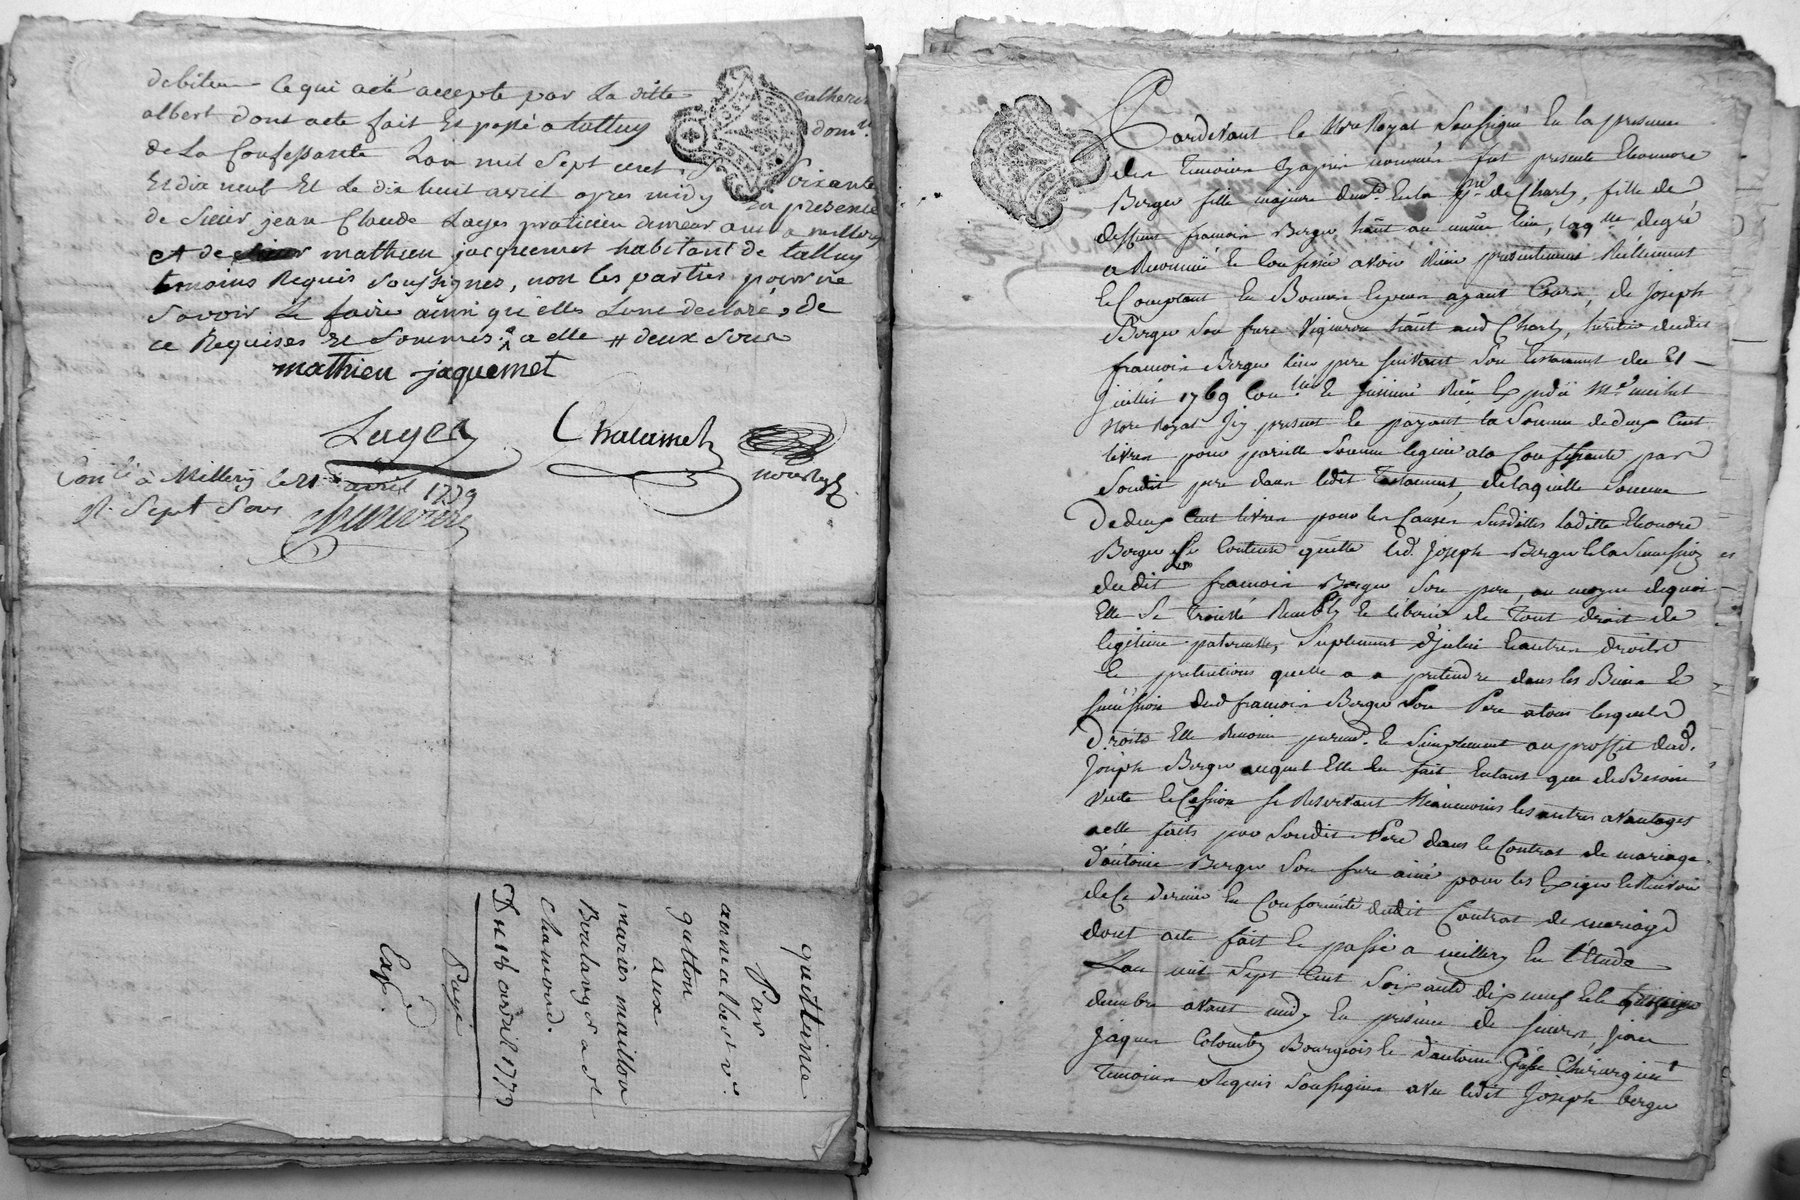 debiteur ce qui a été accepté par la ditte catherine
albert dont acte fait Et passé a talluy dom.lle
de la Confessante Lan mil sept cent Soixante
Et dix neuf Et Le dix huit avril apres midy En presence
de Sieur jean Claude Layes praticien demeurant a millery
et de mathieu jacquemet habitant de talluy
temoins Requis soussignes, non les parties pour ne
savoir Le faire ainsi qu'elles Lont declaré, de
ce Requises Et Sommés. a elle # deux sous
mathieu jaquemet
Layes Chalumet
Con.lé à Millery le 21 avril 1779
R. Sept Sous
quittance
Par
anne albert v.e
gutton
aux
mariés maillon
Boulanger a S.t
chamond.
Du 18 avril 1779
Payé
Exp.
Pardevant le No.re Royal Soussigné En la presence
des Temoins Cyaprès nommés fut presente Eleonore
Berger fille majeure dem.t En la p.sse de Charly, fille de
deffunt francois Berger h̃ant au même lieu, laq.lle de gré
a Reconnu Et Confessé avoir Reçu presentement Reëllement
Et Comptant En Bonnes Especes ayant Cours, de Joseph
Berger Son frere Vigneron h̃ant aud Charly, heritier dudit
francois Berger leur pere Suivant Son testament du 21
juillet 1769 Con.lé Et Insinué Reçu Et Expedié M.e
No.re Royal Icy present Et payant la Somme de deux Cent
livres pour pareille Somme leguée a la Confessante par
Soudit pere dans ledit Testament, de laquelle Somme
De deux Cent livres pour les Causes Susdittes laditte Eleonore
Berger Se Contente quitte led. Joseph Berger Et la Succession
dudit francois Berger Son pere, au moyen de quoi
Elle Se trouve Remplie Et liberée de Tout droit de
legitime paternelle, Suplement d'jcelui Et autres droits
Et pretentions quelle a a pretendre dans les Biens Et
Succession dud francois Berger Son Pere a tous lesquels
Droits Elle Renonce purem.t Et Simplement au proffit dud.
Joseph Berger auquel Elle En fait Entant que de Besoin
Vente Et Cession Se Reservant Néanmoins les autres avantages
a elle faits par Soudit Pere dans le Contrat de mariage
d'antoine Berger Son frere ainé pour les Exiger Et Recevoir
de Ce dernier En Conformité dudit Contrat de mariage
dont acte fait Et passé a millery En l'Etude
Lan mil Sept Cent Soixante dix neuf Et le
avant midy En presence de Sieurs jean
Jaques Colomby Bourgeois Et d'antoine Chirurgien
Temoins Requis Soussignés avec ledit Joseph berger